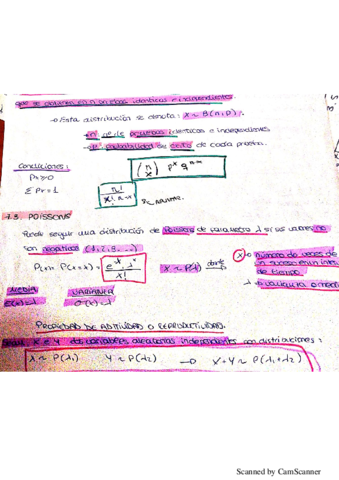 que se obtienen en n pruebas idénticas e independientes
→ Esta distribución se denota: X ~ B(n,p).
n: nº de pruebas idénticas e independientes
p: probabilidad de éxito de cada prueba.
Condiciones:
Pr ≥ 0
Σ Pr = 1
(n x) p^x q^n-x
n! / x!(n-x)!
7.3 POISSONS
Puede seguir una distribución de Poisson de parametro λ si sus valores no
son negativos (1, 2, 3, ...)
P(x=x) = e^-λ · λ^x / x!
X ~ P(λ) donde
X → número de veces de
un suceso en un inter.
de tiempo
λ →
MEDIA
E(x)=λ
VARIANZA
σ²(x)=λ
PROPIEDAD DE ADITIVIDAD O REPRODUCTIVIDAD.
X e Y dos variables aleatorias independientes con distribuciones:
X ~ P(λ1) Y ~ P(λ2) → X+Y ~ P(λ1+λ2)
Scanned by CamScanner